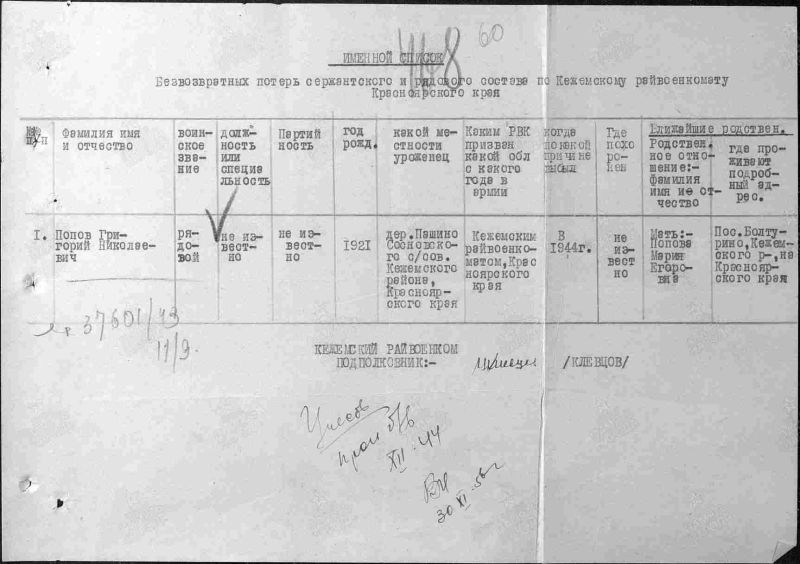 60
ИМЕННОЙ СПИСОК
Безвозвратных потерь сержантского и рядового состава по Кежемскому райвоенкомату
Красноярского края
№№ п/п
Фамилия имя и отчество
воин-
ское
зва-
ние
долж-
ность
или
специа
льность
Партий
ность
год
рожд.
какой ме-
стности
уроженец
Каким РВК
призван
какой обл
с какого
года в
армии
когда
по какой
причине
выбыл
Где
похо
ро-
нен
Ближайшие родствен.
Родствен.
ное отно-
шение:-
фамилия
имя ие от-
чество
где про-
живают
подроб-
ный ад-
рес.
I.
Попов Гри-
горий Николае-
вич
ря-
до-
вой
не из-
вест-
но
не из-
вест-
но
1921
дер.Пашино
Сосновско-
го с/сов.
Кежемского
района,
Краснояр-
ского края
Кежемским
райвоенко-
матом,Крас
ноярского
края
В
1944г.
не
из-
вест
но
Мать:-
Попова
Мария
Егоро-
вна
Пос.Болту-
рино,Кежем-
ского р-,на
Краснояр-
ского края
37601/43
11/9.
КЕЖЕМСКИЙ РАЙВОЕНКОМ
ПОДПОЛКОВНИК:-
/КЛЕВЦОВ/
Учесов
проп б/в
XII-44
30 XI 56г